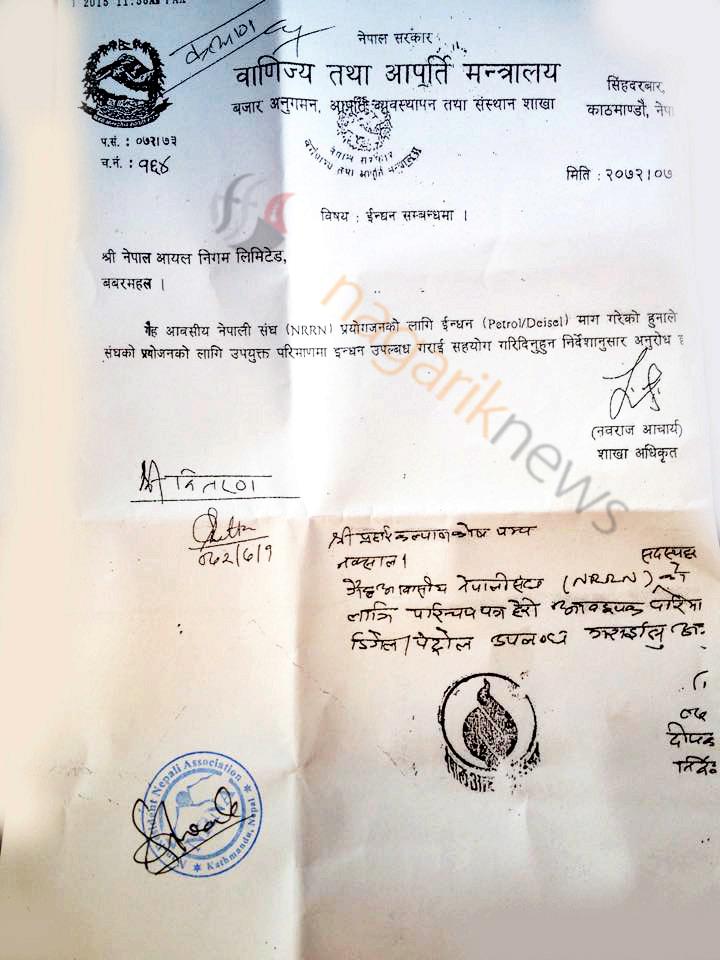 2015 11:38AM FAX
कल्याण
नेपाल सरकार
वाणिज्य तथा आपूर्ति मन्त्रालय
बजार अनुगमन, आपूर्ति व्यवस्थापन तथा संस्थान शाखा
सिंहदरबार,
काठमाण्डौ, नेपा
नेपाल सरकार
वाणिज्य तथा आपूर्ति मन्त्रालय
प.सं. : ०७२।७३
च.नं. : १६४
मिति : २०७२।०७
विषय : ईन्धन सम्बन्धमा ।
श्री नेपाल आयल निगम लिमिटेड,
बबरमहल ।
गैह्र आवसीय नेपाली संघ (NRRN) प्रयोगजनको लागि ईन्धन (Petrol/Deisel) माग गरेको हुनाले
संघको प्रयोजनको लागि उपयुक्त परिमाणमा इन्धन उपल्बध गराई सहयोग गरिदिनुहुन निर्देशानुसार अनुरोध छ
(नवराज आचार्य)
शाखा अधिकृत
श्री वितरण
श्री प्रहरी कल्याण कोष पम्प
नक्साल।
सदस्यह
गैह्र आवासीय नेपाली संघ (NRRN) को
लागि परिचय पत्र हेरी आवश्यक परिमा
डिजेल/पेट्रोल उपलब्ध गराईदिनु
दीपक
nagariknews
Nepali Association
NRNA
Kathmandu, Nepal